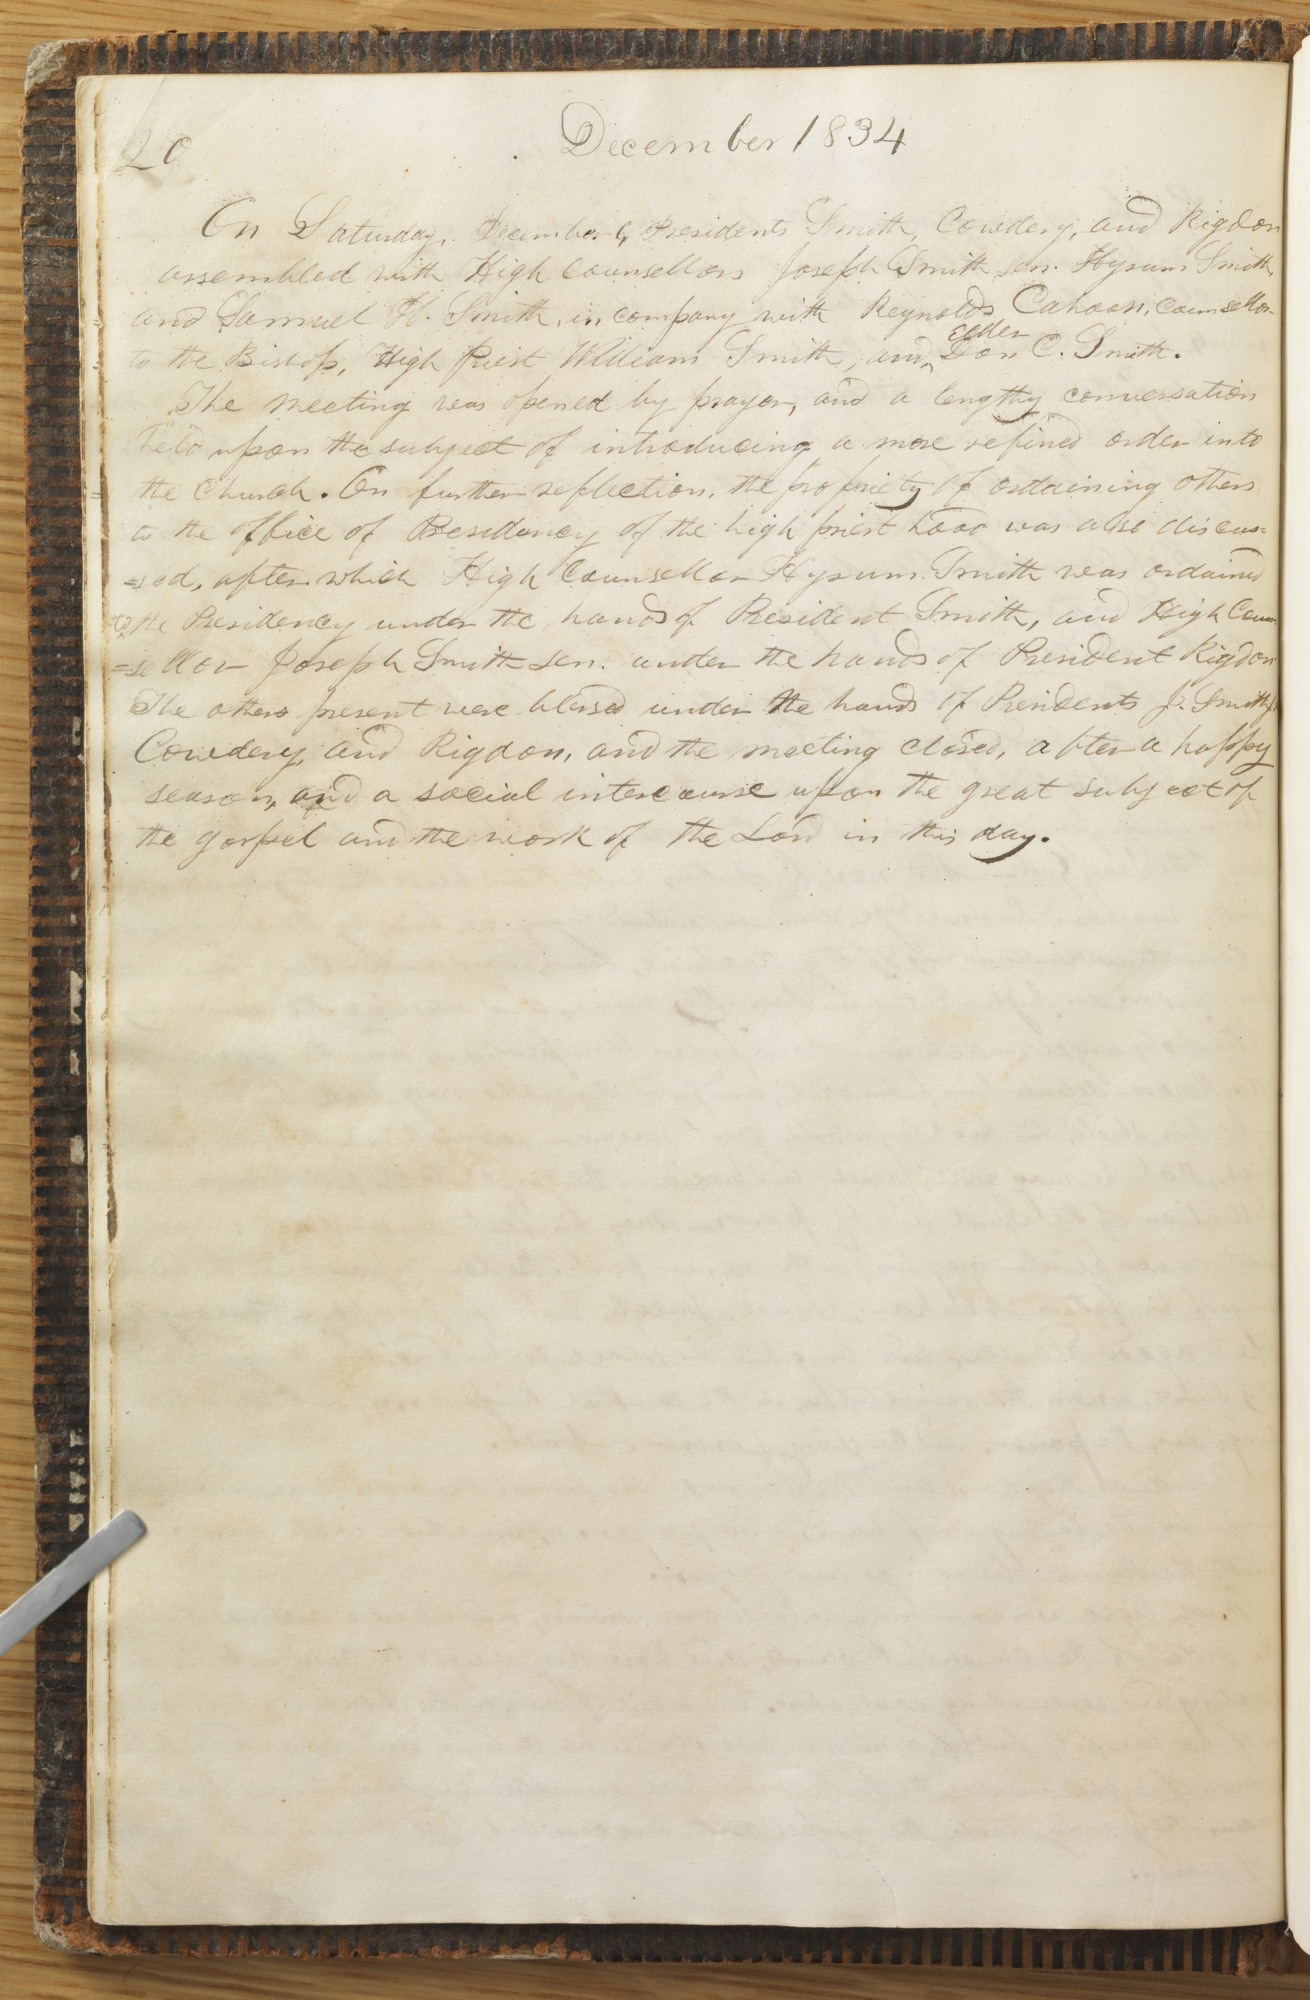 20
December 1834
On Saturday, December 6, Presidents Smith, Cowdery, and Rigdon
assembled with High Counsellors Joseph Smith sen. Hyrum Smith,
and Samuel H. Smith, in company with Reynolds Cahoon, counsellor
Elder
to the Bishop, High Priest William Smith, and ^ Don C. Smith.
The meeting was opened by prayer, and a lengthy conversation
held upon the subject of introducing a more refined order into
the Church. On further reflection, the propriety of ordaining others
to the office of Presidency of the high priesthood was also discus=
=sed, after which High Counsellor Hyrum Smith was ordained
to the Presidency under the hands of President Smith, and High Coun=
=sellor Joseph Smith sen. under the hands of President Rigdon
The others present were blessed under the hands of Presidents J. Smith jr
Cowdery, and Rigdon, and the meeting closed, after a happy
season, and a social intercourse upon the great subject of
the gospel and the work of the Lord in this day.